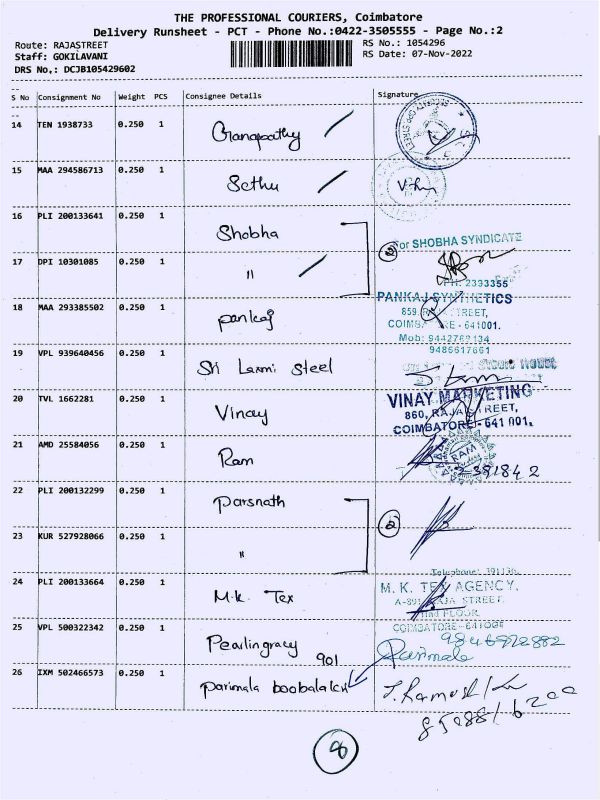 THE PROFESSIONAL COURIERS, Coimbatore
Delivery Runsheet - PCT - Phone No.:0422-3505555 - Page No.:2
Route: RAJASTREET
RS No.: 1054296
Staff: GOKILAVANI
RS Date: 07-Nov-2022
DRS No,: DCJB105429602
S No Consignment No Weight PCS Consignee Details Signature
14 TEN 1938733 0.250 1 Ganapathy
15 MAA 294586713 0.250 1 Sethu
16 PLI 200133641 0.250 1 Shobha
For SHOBHA SYNDICATE
17 DPI 10301085 0.250 1 "
PH: 2333355
PANKAJ SYNTHETICS
18 MAA 293385502 0.250 1 pankaj
859, RAJA STREET,
COIMBATORE - 641001.
Mob: 9442762134
9486617661
19 VPL 939640456 0.250 1 Sri Laxmi Steel
20 TVL 1662281 0.250 1 Vinay
VINAY MARKETING
860, RAJA STREET,
COIMBATORE - 641 001.
21 AMD 25584056 0.250 1 Ram
RAM
22 PLI 200132299 0.250 1 Parsnath
2
23 KUR 527928066 0.250 1 "
24 PLI 200133664 0.250 1 M.K. Tex
M. K. TEX AGENCY,
RAJA STREET,
IInd FLOOR,
25 VPL 500322342 0.250 1 Pearlingracy
901
Parimala
26 IXM 502466573 0.250 1 parimala boobalalan
8